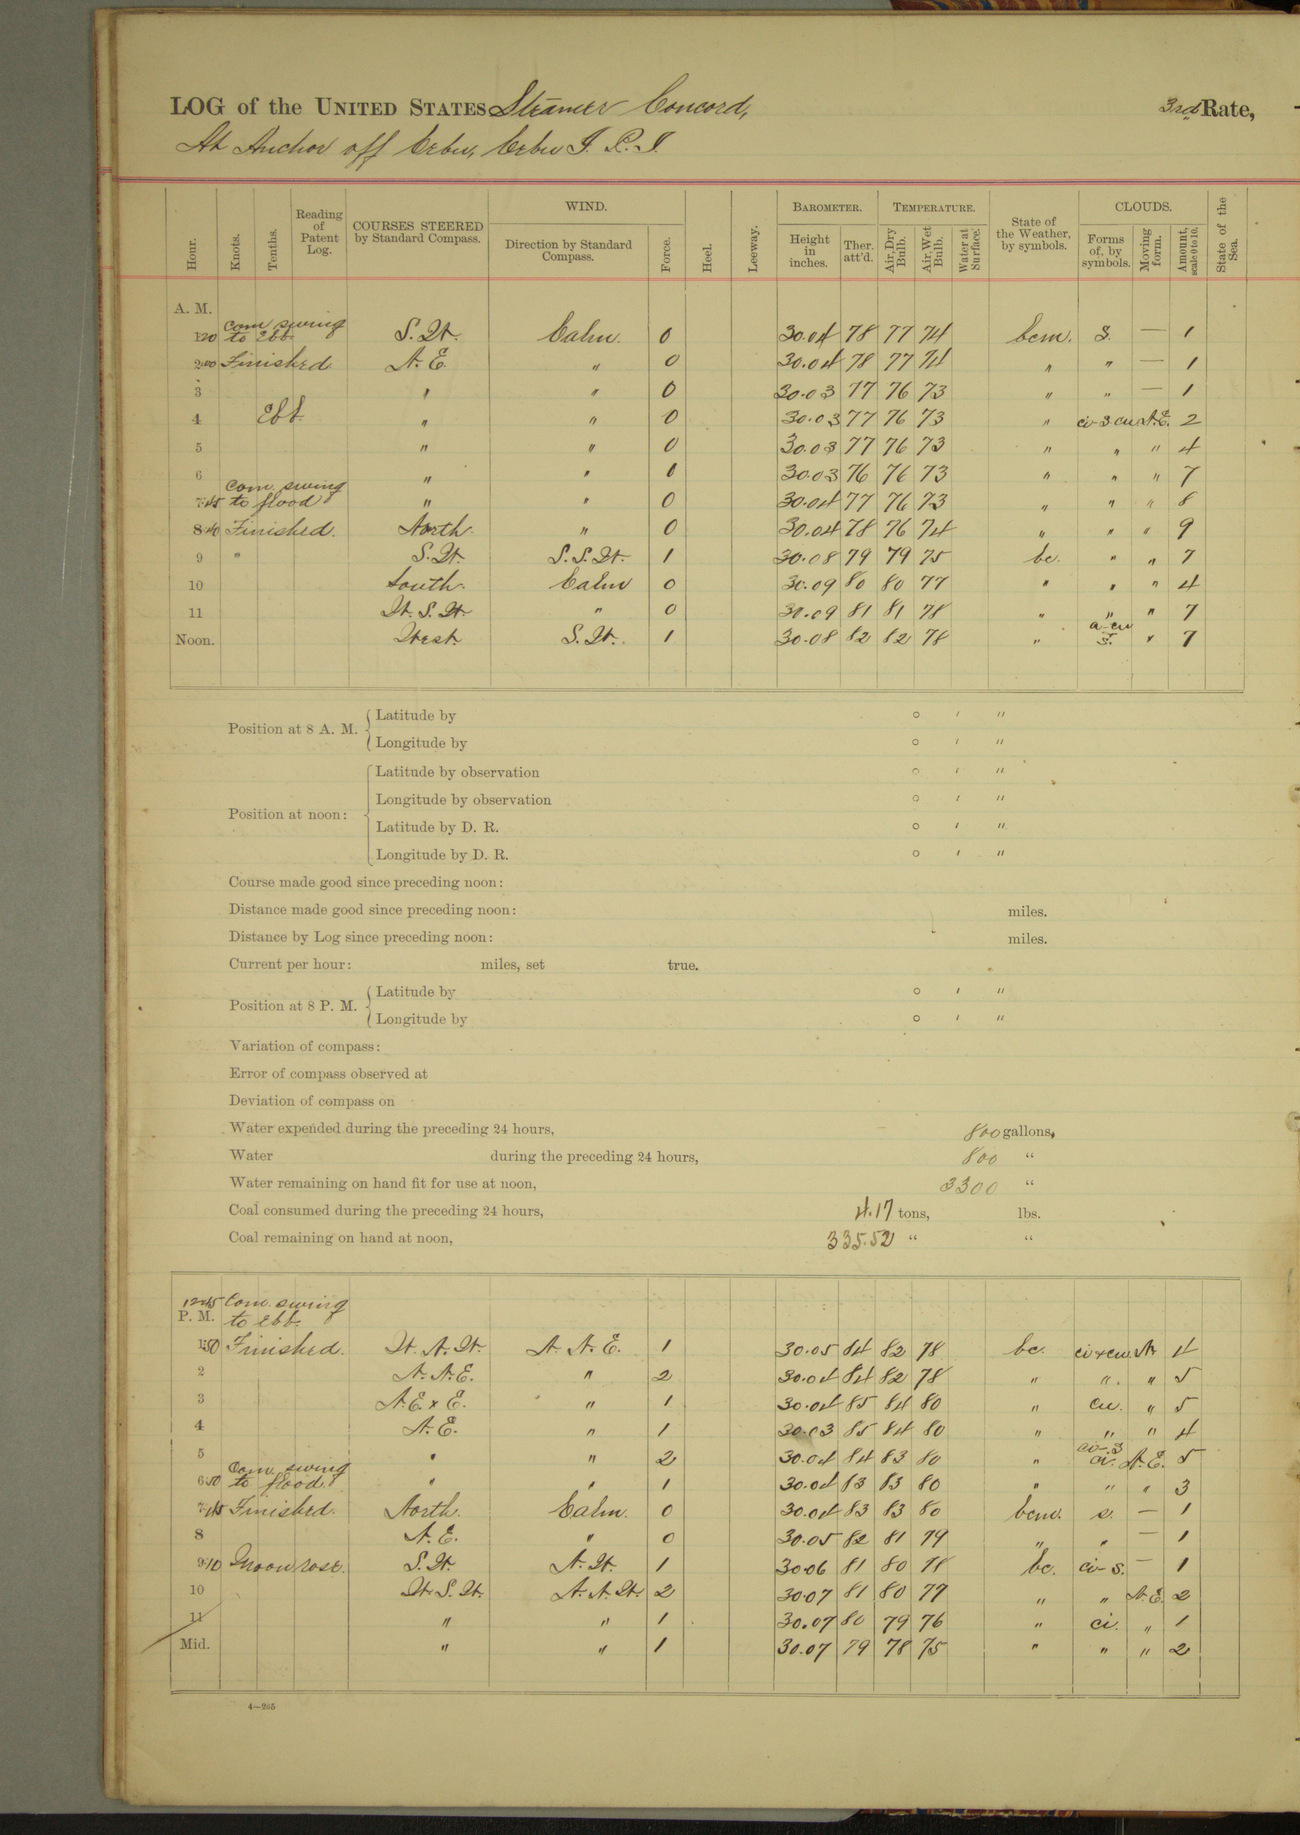 LOG of the UNITED STATES Steamer Concord, 3rd Rate,
At Anchor off Cebu, Cebu I. P. I.
Hour. Knots. Tenths. Reading of Patent Log. COURSES STEERED by Standard Compass. WIND. Direction by Standard Compass. Force. Heel. Leeway. BAROMETER. Height in inches. Ther. att'd. TEMPERATURE. Air, Dry Bulb. Air, Wet Bulb. Water at Surface. State of the Weather, by symbols. CLOUDS. Forms of, by symbols. Moving form. Amount, scale 0 to 10. State of the Sea.
A. M.
1:20 Com. swing to Ebb. S. W. Calm. 0 30.04 78 77 74 bcm. S. — 1
2:00 Finished N. E. " 0 30.04 78 77 74 " " — 1
3 " " 0 30.03 77 76 73 " " — 1
4 Ebb. " " 0 30.03 77 76 73 " ci-s cu N.E. 2
5 " " 0 30.03 77 76 73 " " " 4
6 " " 0 30.03 76 76 73 " " " 7
7:45 Com. swing to flood " " 0 30.04 77 76 73 " " " 8
8:40 Finished. North. " 0 30.04 78 76 74 " " " 9
9 " S. W. S. S. W. 1 30.08 79 79 75 bc. " " 7
10 South. Calm 0 30.09 80 80 77 " " " 4
11 W. S. W. " 0 30.09 81 81 78 " " " 7
Noon. West. S. W. 1 30.08 82 82 78 " a-cu s. " 7
Position at 8 A. M. Latitude by ° ′ ″
Longitude by ° ′ ″
Position at noon: Latitude by observation ° ′ ″
Longitude by observation ° ′ ″
Latitude by D. R. ° ′ ″
Longitude by D. R. ° ′ ″
Course made good since preceding noon:
Distance made good since preceding noon: miles.
Distance by Log since preceding noon: miles.
Current per hour: miles, set true.
Position at 8 P. M. Latitude by ° ′ ″
Longitude by ° ′ ″
Variation of compass:
Error of compass observed at
Deviation of compass on
Water expended during the preceding 24 hours, 800 gallons,
Water during the preceding 24 hours, 800 "
Water remaining on hand fit for use at noon, 3300 "
Coal consumed during the preceding 24 hours, 4.17 tons, lbs.
Coal remaining on hand at noon, 335.52 " "
12:45 Com. swing
P. M. to ebb.
1:50 Finished. W. N. W. N. N. E. 1 30.05 84 82 78 bc. ci+cu. N. 4
2 N. N. E. " 2 30.04 84 82 78 " " " 5
3 N. E. x E. " 1 30.04 85 84 80 " cu. " 5
4 N. E. " 1 30.03 85 84 80 " " " 4
5 " " 2 30.04 84 83 80 " ci-s N. E. 5
6:50 Com. swing to flood. " " 1 30.04 83 83 80 " " " 3
7:45 Finished. North. Calm. 0 30.04 83 83 80 bcm. s. — 1
8 N. E. " 0 30.05 82 81 79 " " — 1
9:10 Moon rose. S. W. N. W. 1 30.06 81 80 78 bc. ci-s. — 1
10 W. S. W. N. N. W. 2 30.07 81 80 77 " " N. E. 2
11 " " 1 30.07 80 79 76 " ci. " 1
Mid. " " 1 30.07 79 78 75 " " " 2
4—265